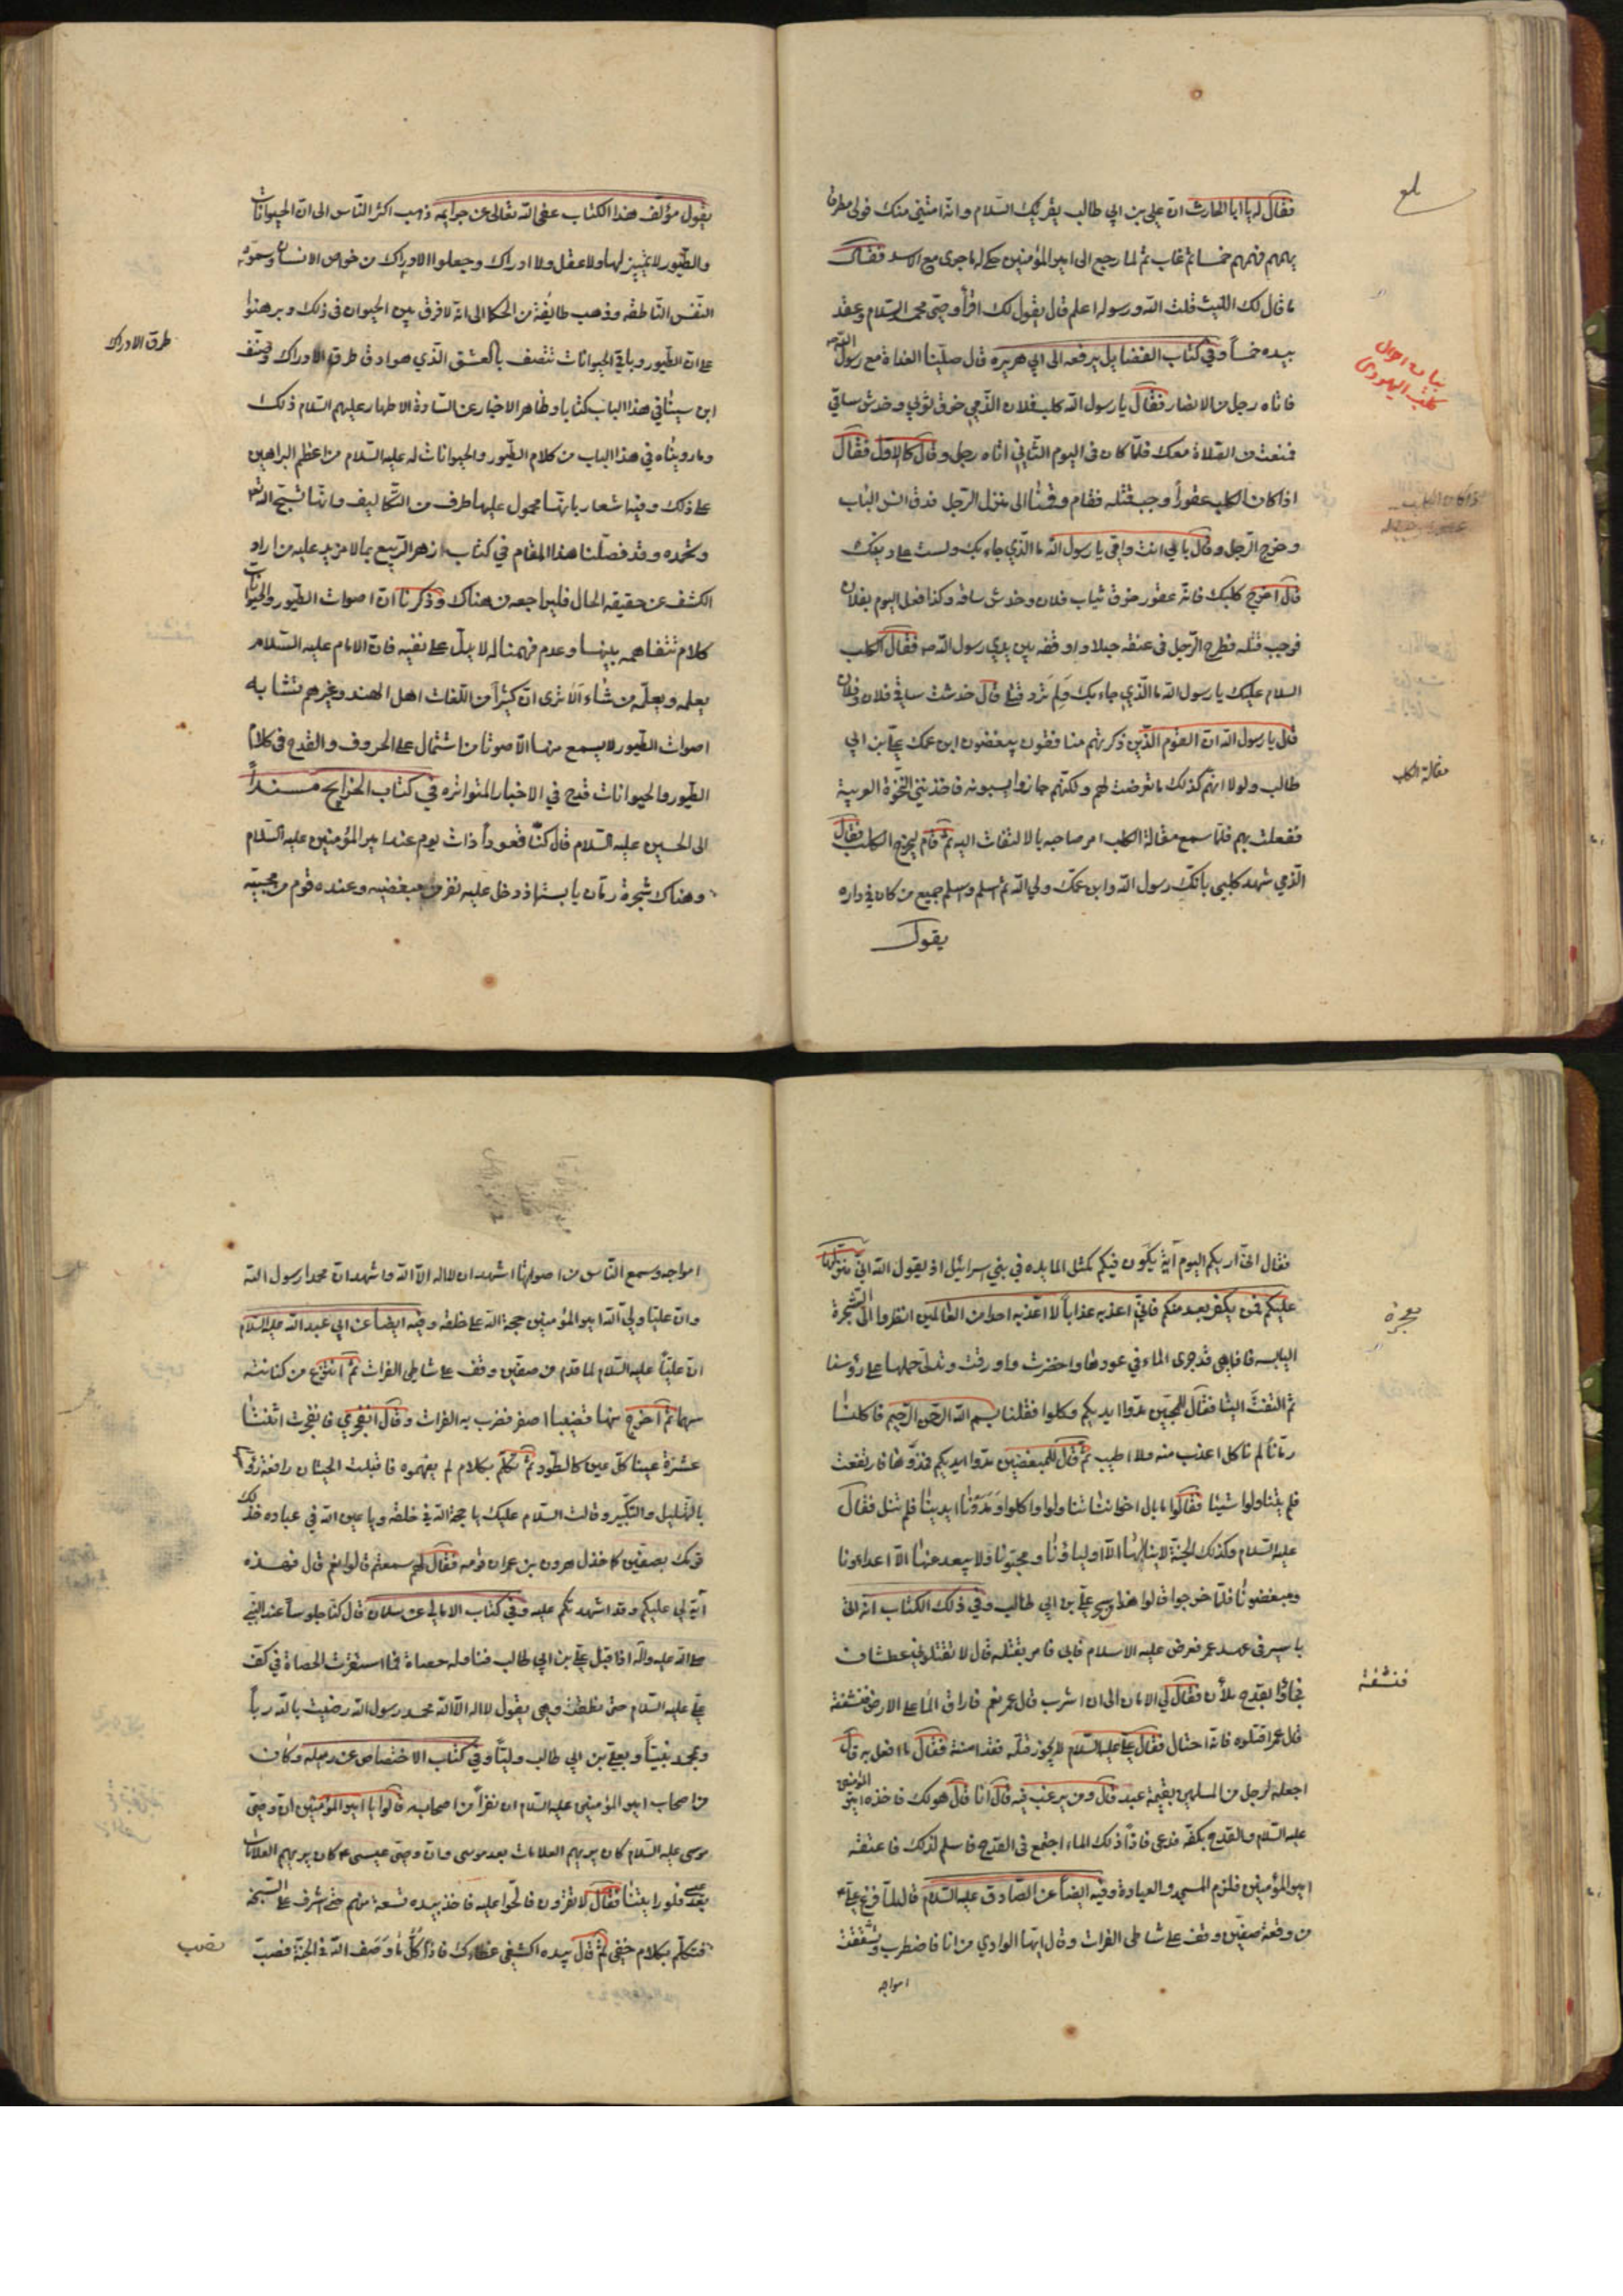 فقال له يا ابا الحارث ان علي بن ابي طالب يقرئك السلام وانه امنني منك فولى مطرقا
يهمهم فهمهم خمسا ثم غاب ثم لما رجع الى امير المؤمنين حكى له ما جرى مع الاسد فقال
ما قال لك الليث قلت الله ورسوله اعلم قال يقول لك اقرأ وصي محمد السلام وعقد
بيده خمساً وفي كتاب الفضايل يرفعه الى ابي هريره قال صلينا الغداة مع رسول الله ص
فاتاه رجل من الانصار فقال يا رسول الله كلب فلان الذمي خرق ثوبي وخدش ساقي
فمنعت من الصلاة معك فلما كان في اليوم الثاني اتاه رجل وقال كالاول فقال
اذا كان الكلب عقوراً وجب قتله فقام وقمنا الى منزل الرجل فدق انس الباب
وخرج الرجل وقال بابي انت وامي يا رسول الله ما الذي جاء بك ولست على دينك
قال اخرج كلبك فانه عقور خرق ثياب فلان وخدش ساقه وكذا فعل اليوم بفلان
فوجب قتله فطرح الرجل في عنقه حبلا واوقفه بين يدي رسول الله ص فقال الكلب
السلام عليك يا رسول الله ما الذي جاء بك ولم ترد قتلي قال خدشت ساق فلان وفلان
قال يا رسول الله ان القوم الذين ذكرتهم منافقون يبغضون ابن عمك علي بن ابي
طالب ولولا انهم كذلك ما تعرضت لهم ولكنهم جازوا يسبونه فاخذتني النخوة العربية
ففعلت بهم فلما سمع مقالة الكلب امر صاحبه بالالتفات اليه ثم قام ليخرج الكلب فقال
الذمي شهد كلبي بانك رسول الله وابن عمك ولي الله ثم اسلم واسلم جميع من كان في داره
يقول
بلغ
بيان احوال
كلب اليهودى
مقالة الكلب
يقول مؤلف هذا الكتاب عفى الله تعالى عن جرايمه ذهب اكثر الناس الى ان الحيوانات
والطيور لا تمييز لها ولا عقل ولا ادراك وجعلوا الادراك من خواص الانسان وسموه
النفس الناطقه وذهب طايفة من الحكما الى انه لا فرق بين الحيوان في ذلك وبرهنوا
على ان الطيور وباقي الحيوانات تتصف بالعشق الذي هو ادق طرق الادراك وصنف
ابن سينا في هذا الباب كتابا وظاهر الاخبار عن السادة الاطهار عليهم السلام ذلك
وما رويناه في هذا الباب من كلام الطيور والحيوانات له عليه السلام من اعظم البراهين
على ذلك وفيه اشعار بانها محمول عليها طرف من التكاليف وانها تسبح الله
وتحمده وقد فصلنا هذا المقام في كتاب زهر الربيع بما لا مزيد عليه من اراد
الكشف عن حقيقه الحال فليراجعه من هناك وذكرنا ان اصوات الطيور والحيوانات
كلام تتفاهمه بينها وعدم فهمنا له لا يدل على نفيه فان الامام عليه السلام
يعلمه ويعلمه من شاء ألا ترى ان كثيراً من اللغات اهل الهند وغيرهم تشابه
اصوات الطيور لا يسمع منها الا صوتا من اشتمال على الحروف والقدح في كلام
الطيور والحيوانات قدح في الاخبار المتواتره في كتاب الخرايج مسنداً
الى الحسين عليه السلام قال كنا قعوداً ذات يوم عند امير المؤمنين عليه السلام
وهناك شجرة رمان يابسة اذ دخل عليه نفر من مبغضيه وعنده قوم من محبيه
طرق الادراك
فقال اني اريكم اليوم آية تكون فيكم كمثل المايده في بني اسرائيل اذ يقول الله اني منزلها
عليكم فمن يكفر بعد منكم فاني اعذبه عذاباً لا اعذبه احدا من العالمين انظروا الى الشجرة
اليابسه فاذا هي قد جرى الماء في عودها واخضرت واورقت وتدلى حملها على رؤسنا
ثم التفت الينا فقال للمحبين مدوا ايديكم وكلوا فقلنا بسم الله الرحمن الرحيم فاكلنا
رمانا لم ناكل اعذب منه ولا اطيب ثم قال للمبغضين مدوا ايديكم فمدوها فارتفعت
فلم يتناولوا شيئا فقالوا ما بال اخواننا تناولوا واكلوا ومددنا ايدينا فلم تنل فقال
عليه السلام وكذلك الجنة لا ينالها الا اولياؤنا ومحبونا ولا يبعد عنها الا اعداءنا
ومبغضونا فلما خرجوا قالوا هذا سحر علي بن ابي طالب وفي ذلك الكتاب انه اتى
باسير في عهد عمر فعرض عليه الاسلام فابى فامر بقتله قال لا تقتلوني عطشان
فجاؤا بقدح ملآن فقال لي الامان الى ان اشرب قال عمر نعم فاراق الماء على الارض فنشفته
قال عمر اقتلوه فانه احتال فقال علي عليه السلام لا يجوز قتله فقد امنته فقال ما افعل به قال
اجعله لرجل من المسلمين بقيمة عبد قال ومن يرغب فيه قال انا قال هو لك فاخذه امير المؤمنين
عليه السلام والقدح بكفه فدعى فاذا ذلك الماء اجتمع في القدح فاسلم لذلك فاعتقه
امير المؤمنين فلزم المسجد والعبادة وفيه ايضاً عن الصادق عليه السلام قال لما فرغ علي ع
من وقعة صفين وقف على شاطى الفرات وقال ايها الوادي من انا فاضطرب وتشققت
امواجه
معجزة
فنشفته
امواجه وسمع الناس من اصواتها اشهد ان لا اله الا الله واشهد ان محمدا رسول الله
وان عليا ولي الله امير المؤمنين حجة الله على خلقه وفيه ايضا عن ابي عبد الله عليه السلام
ان علياً عليه السلام لما قدم من صفين وقف على شاطى الفرات ثم انتزع من كنانته
سهما ثم اخرج منها قضيبا اصفر فضرب به الفرات وقال انفجري فانفجرت اثنتا
عشرة عينا كل عين كالطود ثم تكلم بكلام لم يفهموه فاقبلت الحيتان رافعة رؤسها
بالتهليل والتكبير وقالت السلام عليك يا حجة الله في خلقه ويا عين الله في عباده خذلك
قومك بصفين كما خذل هرون بن عمران قومه فقال لهم سمعتم قالوا نعم قال فهذه
آية لي عليكم وقد اشهدتكم عليه وفي كتاب الامالي عن سلمان قال كنا جلوسا عند النبي
صلى الله عليه وآله اذ اقبل علي بن ابي طالب فناوله حصاة فما استقرت الحصاة في كف
علي عليه السلام حتى نطقت وهي يقول لا اله الا الله محمد رسول الله رضيت بالله رباً
وبمحمد نبيا وبعلي بن ابي طالب وليا وفي كتاب الاختصاص عن رميله وكان
من اصحاب امير المؤمنين عليه السلام ان نفرا من اصحابه قالوا يا امير المؤمنين ان وصي
موسى عليه السلام كان يريهم العلامات بعد موسى وان وصي عيسى ع كان يريهم العلامات
بعد عيسى فلو اريتنا فقال لا تقرون فالحوا عليه فاخذ بيده تسعة منهم حتى اشرف على السبخة
فتكلم بكلام خفي ثم قال بيده اكشفي غطاءك فاذا كل ما وصف الله في الجنة نصب
نصب